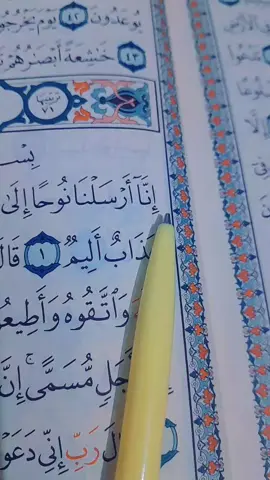 يُوعَدُونَ ٤٢ يَوْمَ يَخْرُجُو
٤٣ خَٰشِعَةً أَبْصَٰرُهُمْ
تَرْتِيبُهَا ٧١
بِسْ
إِنَّآ أَرْسَلْنَا نُوحًا إِلَىٰ
عَذَابٌ أَلِيمٌ ١ قَالَ
وَٱتَّقُوهُ وَأَطِيعُو
جَلٍ مُّسَمًّى ۚ إِنَّ
لَ رَبِّ إِنِّى دَعَوْ